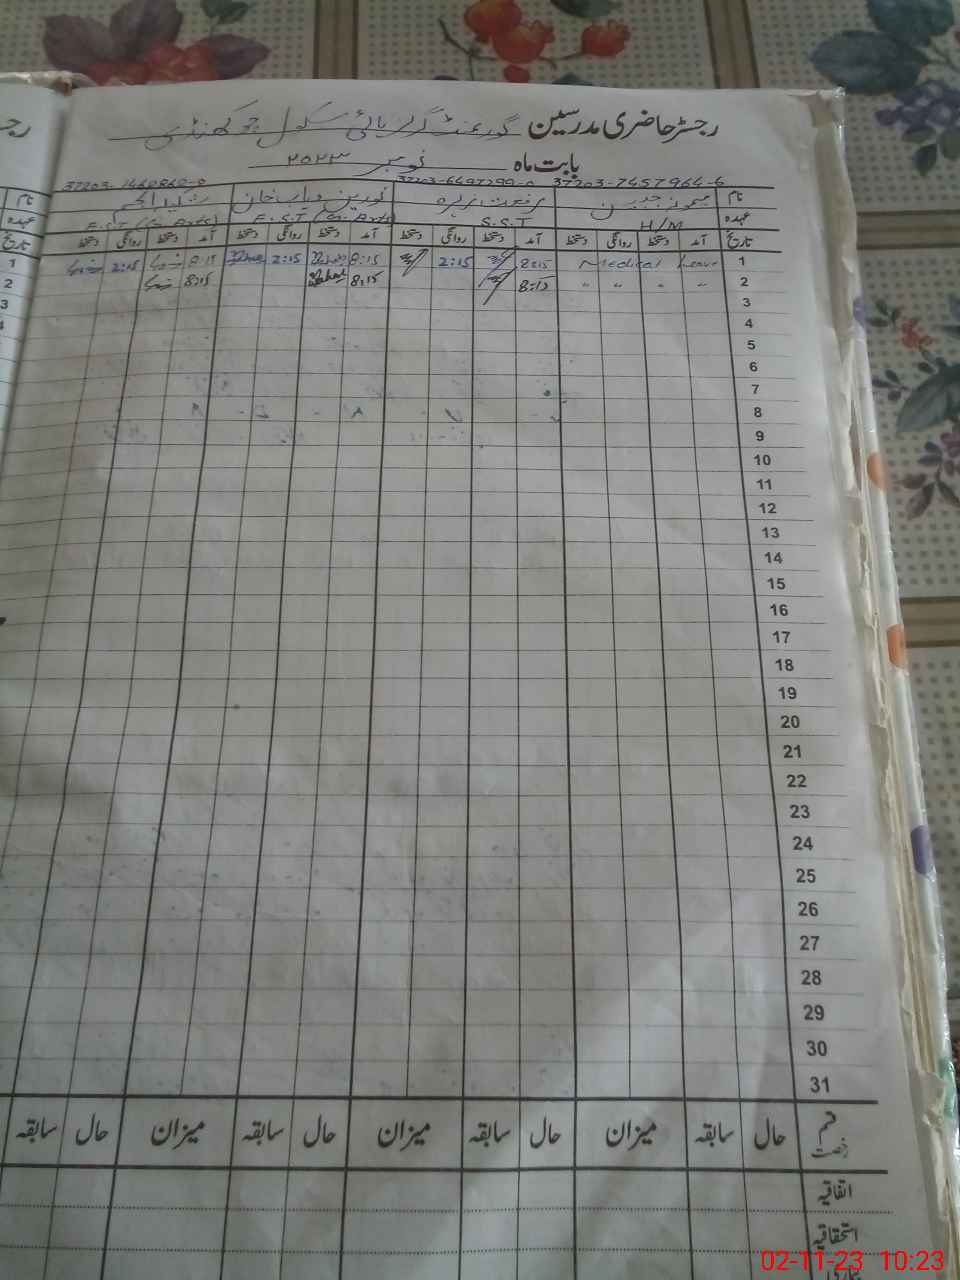 رجسٹر حاضری مدرسین گورنمنٹ گرلز ہائی سکول چوکھنڈی
بابت ماہ نومبر ۲۰۲۳
37203-7457964-6 37203-6497299-0 37203-1460860-0
نام میمونہ جبین رفعت زہرہ نورین وہاب خان
عہدہ H/M S.S.T E.S.T (G. Arts) E.S.T (G. Arts)
تاریخ آمد دستخط روانگی دستخط آمد دستخط روانگی دستخط آمد دستخط روانگی دستخط آمد دستخط روانگی دستخط
1 Medical Leave 8:15 2:15 8:15 2:15 8:15 2:15
2 " " " " 8:15 8:15 8:15
3
4
5
6
7
8
9
10
11
12
13
14
15
16
17
18
19
20
21
22
23
24
25
26
27
28
29
30
31
قسم رخصت حال سابقہ میزان حال سابقہ میزان حال سابقہ میزان حال سابقہ
اتفاقیہ
استحقاقیہ
02-11-23 10:23